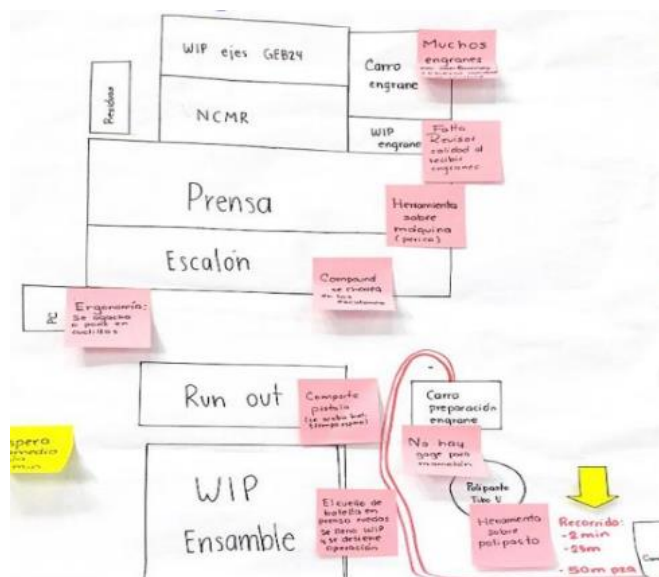 WIP ejes GEB24
Carro
engrane
Muchos
engranes
Residuos
NCMR
WIP
engrane
Falta
Revisar
calidad al
recibir
engranes
Prensa
Herramienta
sobre
máquina
(perico)
Escalón
Compound
se
en los
escalones
PC
Ergonomía:
Se agacha
o pone en
cuclillas
Run out
Comparte
pistola
Carro
preparación
engrane
No hay
gage para
pero
medio
min
WIP
Ensamble
El cuello de
botella en
prensa ruedas
se llena WIP
y se detiene
operación
Polipasto
Tubo U
Herramienta
sobre
polipasto
Recorrido:
-2 min
-25m
-50m pza